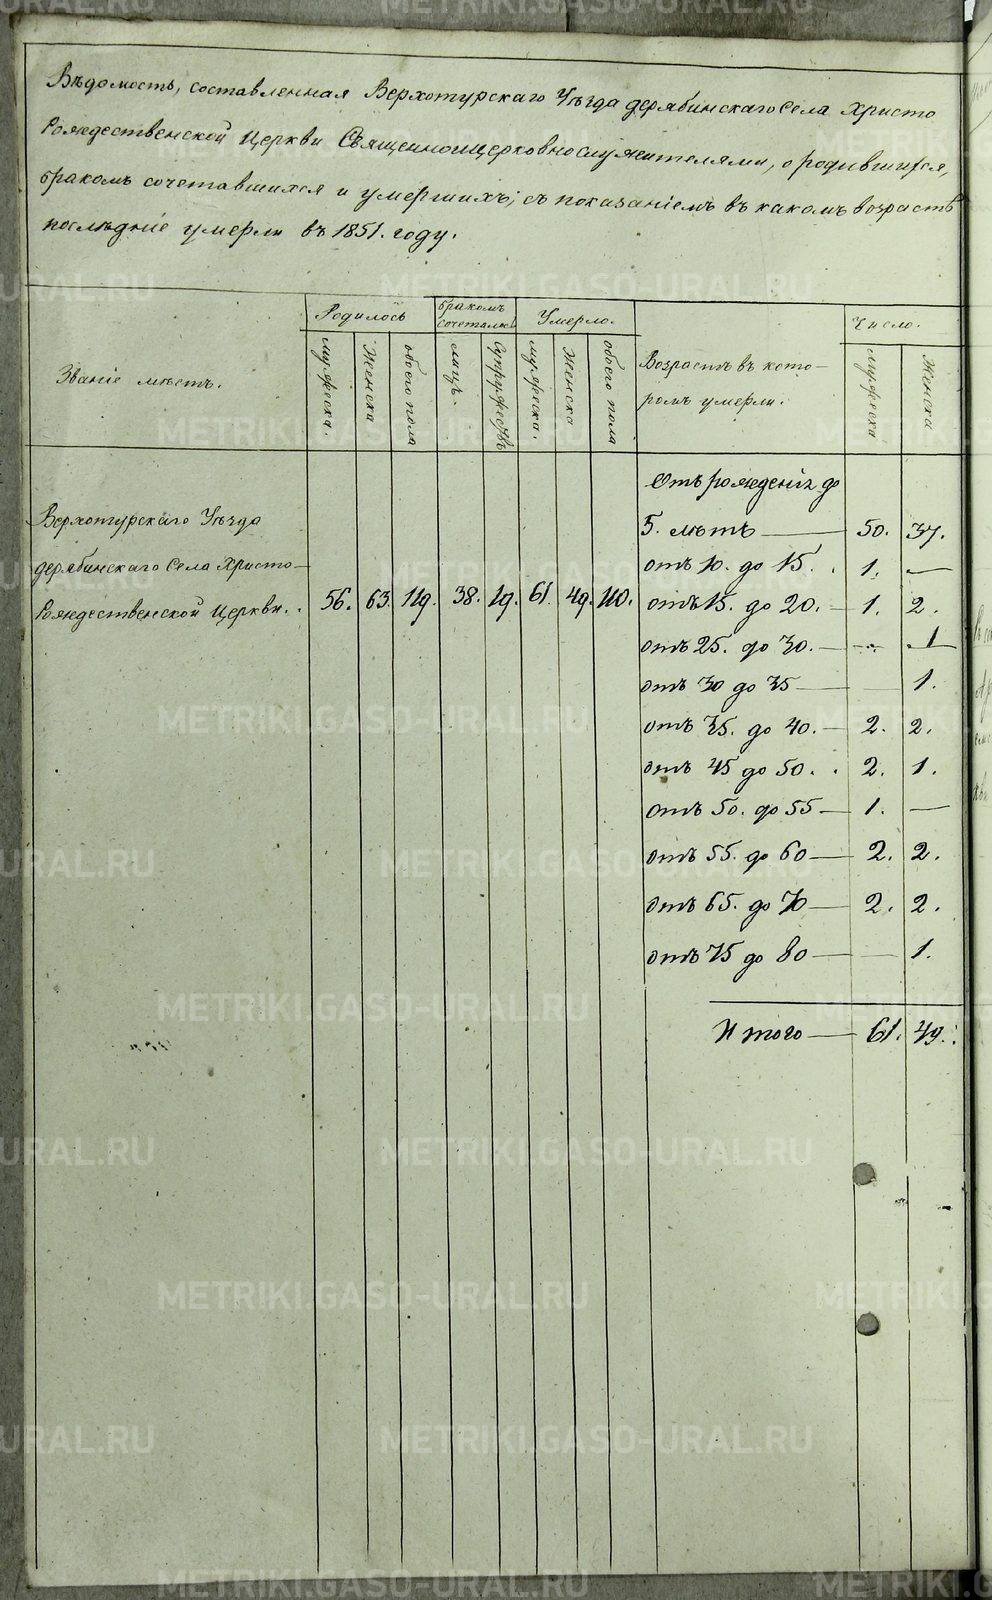 Вѣдомость, составленная Верхотурскаго Уѣзда дерябинскаго Села Христо
Рождественской Церкви Священноицерковнослужителями, о родившихся,
бракомъ сочетавшихся и умершихъ, съ показаніемъ въ какомъ возрастѣ
послѣдніе умерли въ 1851. году.
Званіе мѣстъ.
Родилось
мужеска.
Женска
обоего пола
бракомъ сочетались
лицъ.
Супружествъ
Умерло.
мужеска.
Женска
обоего пола
Возрастъ въ кото-
ромъ умерли.
Число.
мужеска
Женска
Верхотурскаго Уѣзда
дерябинскаго Села Христо-
Рождественской Церкви. . 56. 63. 119. 38. 19. 61. 49. 110.
Отъ рожденія до
5. лѣтъ — 50. 37.
отъ 10. до 15. . 1. —
отъ 15. до 20. — 1. 2.
отъ 25. до 30. — — 1
отъ 30 до 35 — — 1.
отъ 35. до 40. — 2. 2.
отъ 45 до 50. . 2. 1.
отъ 50. до 55 — 1. —
отъ 55. до 60 — 2. 2.
отъ 65. до 70 — 2. 2.
отъ 75 до 80 — — 1.
Итого — 61. 49.
METRIKI.GASO-URAL.RU